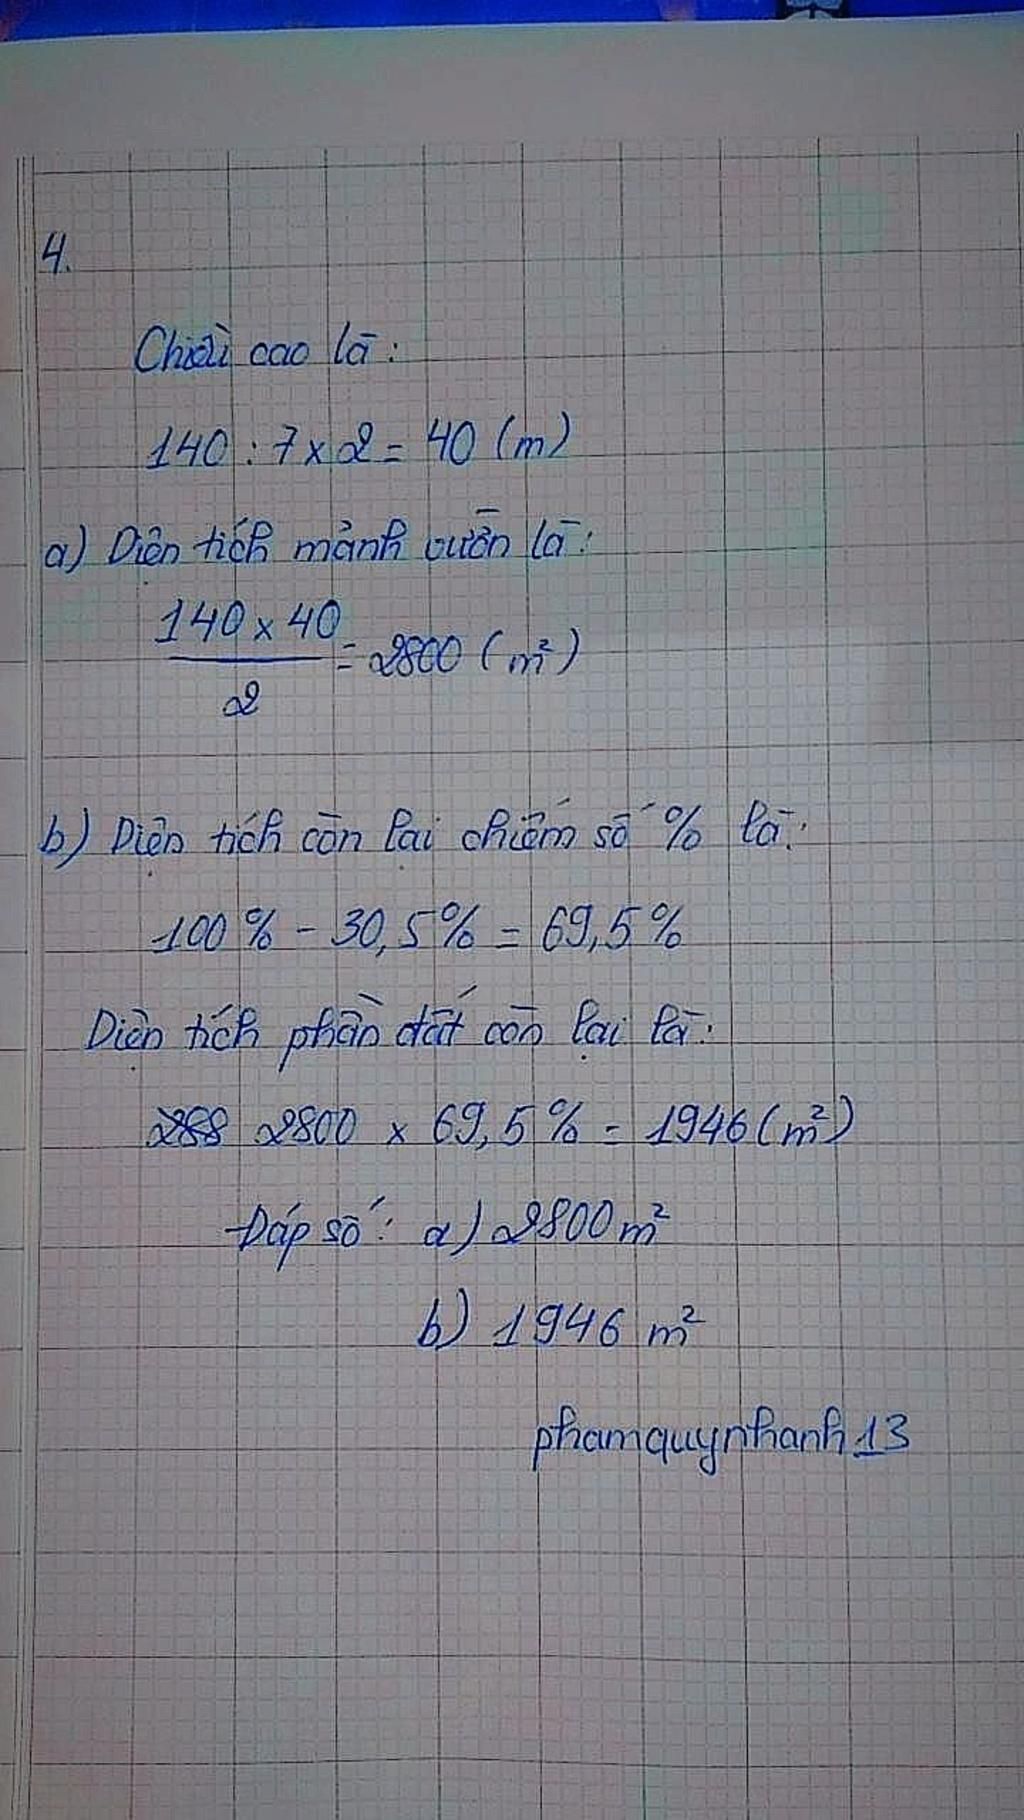 4.
Chiều cao là:
140 : 7 x 2 = 40 (m)
a) Diện tích mảnh vườn là:
140 x 40
2
= 2800 (m²)
b) Diện tích còn lại chiếm số % là:
100 % - 30,5% = 69,5%
Diện tích phần đất còn lại là:
288 2800 x 69,5% = 1946 (m²)
Đáp số: a) 2800 m²
b) 1946 m²
phamquynhanh13